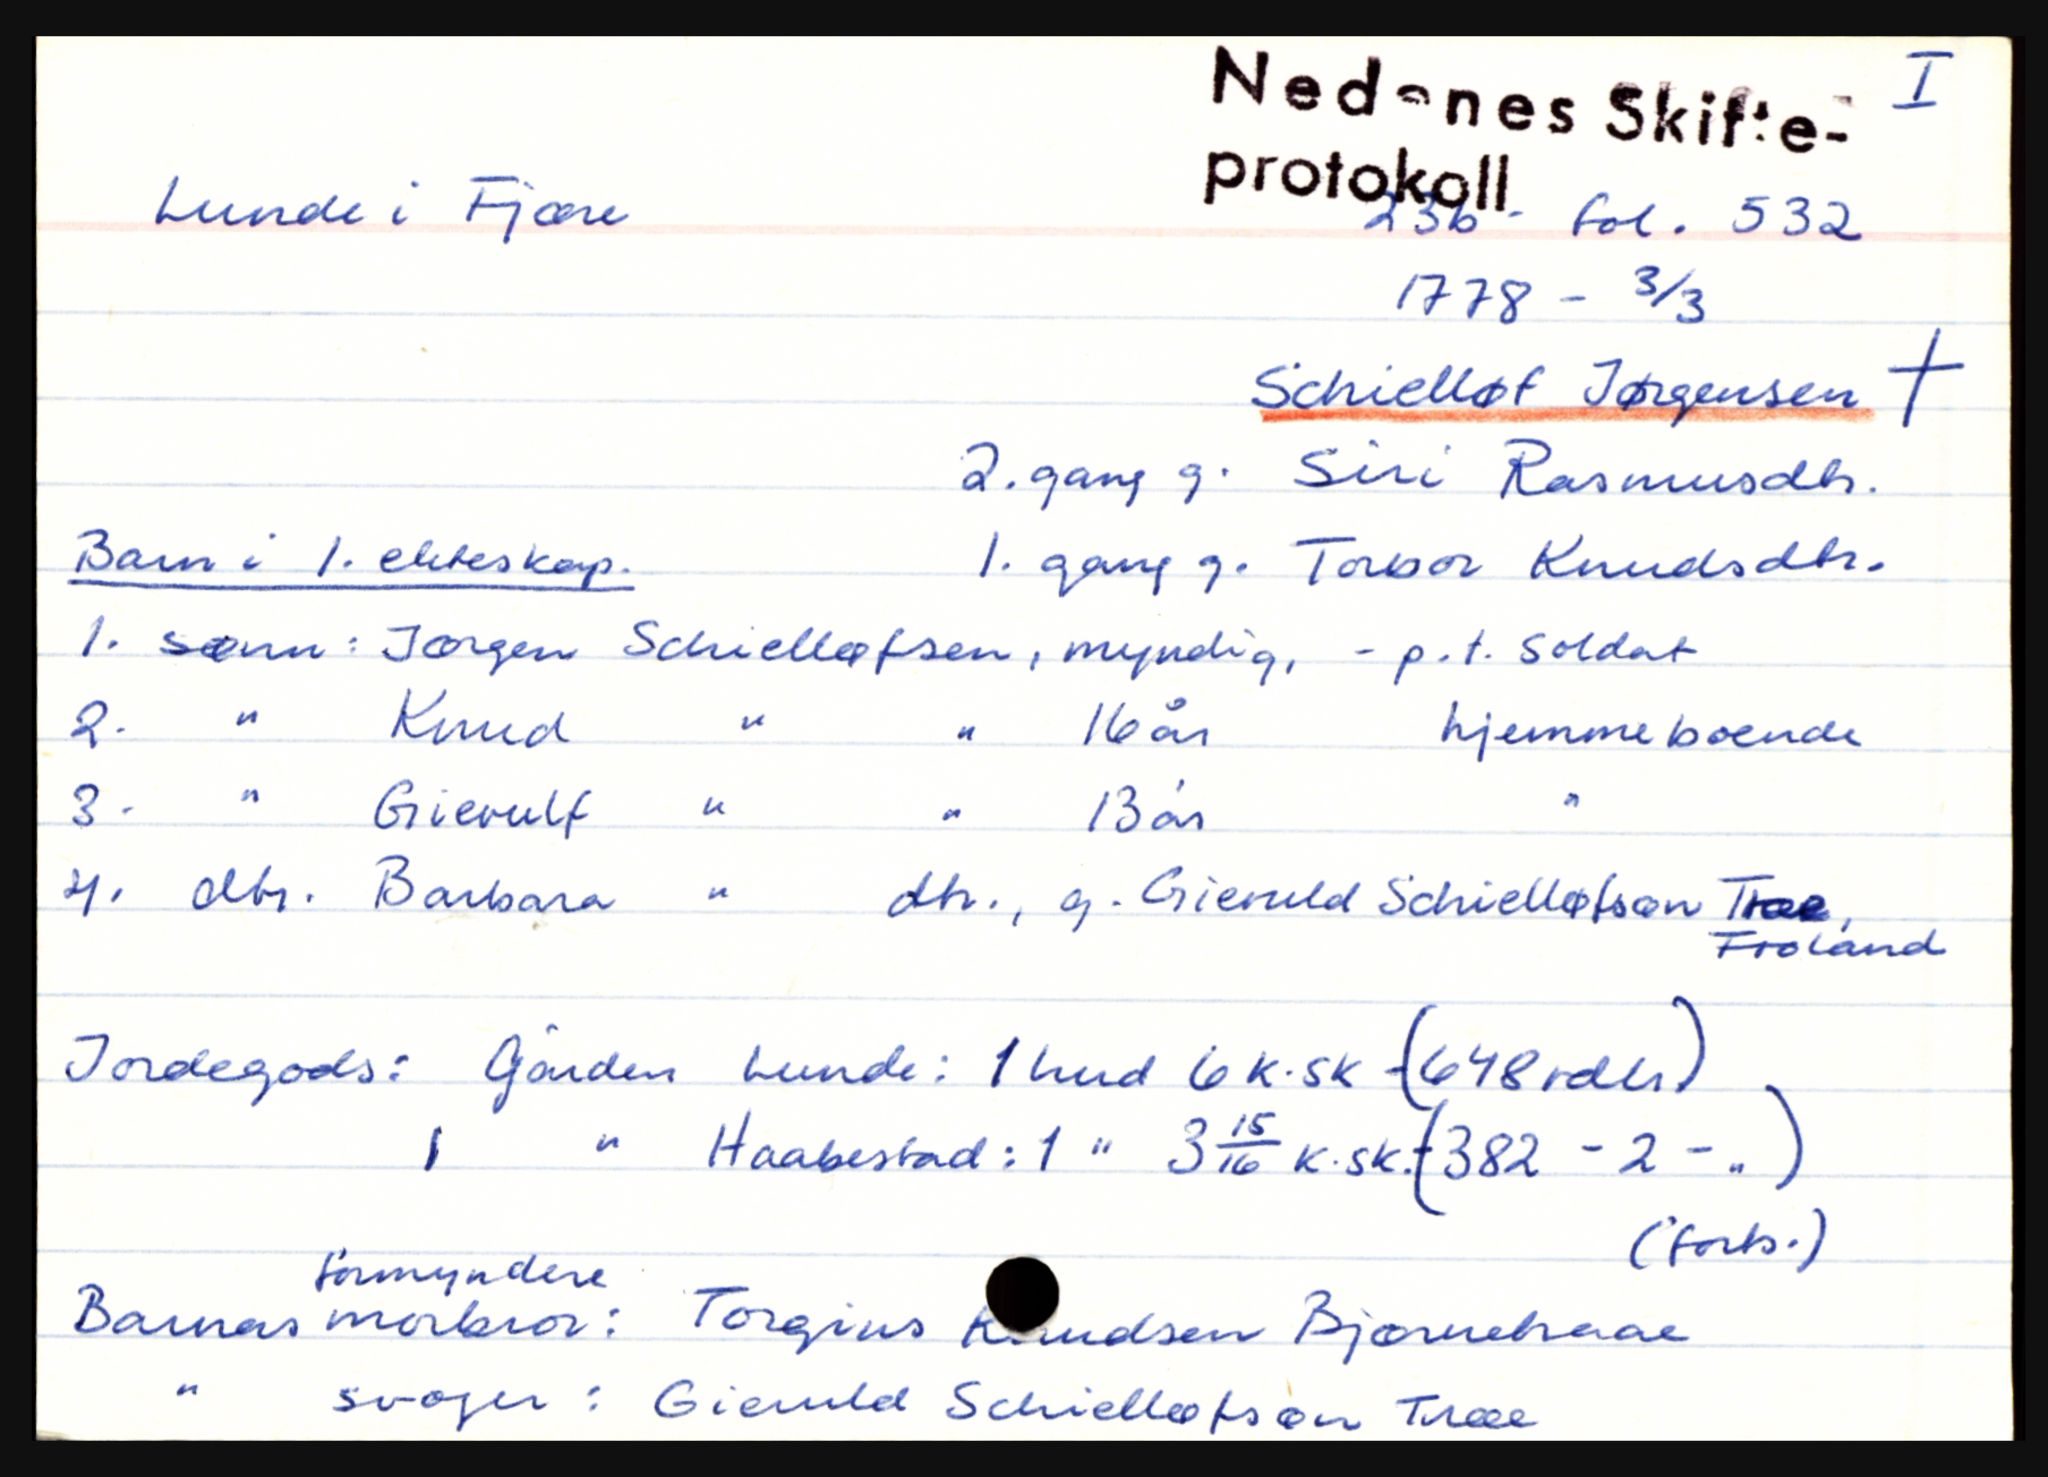 I
Nedenes Skifte-
protokoll
Lunde i Fjære 23b - fol. 532
1778 - 3/3
Schielløf Jørgensen +
2. gang g. Siri Rasmusdtr.
Barn i 1. ekteskap. 1. gang g. Torbor Knudsdtr.
1. sønn: Jørgen Schielløfsen, myndig, - p.t. soldat
2. " Knud " " 16 år hjemmeboende
3. " Gierulf " " 13 år "
4. dtr. Barbara " dtr., g. Gieruld Schielløfsøn Træe,
Froland
Jordegods: Gården Lunde: 1 hud 6 k.sk - (648 rdlr)
1 " Haabestad: 1 " 3 15/16 k.sk. - (382 - 2 - ")
(forts.)
formyndere
Barnas morbror: Torgius Knudsen Bjørnetraae
" svoger: Gieruld Schielløfsøn Træe